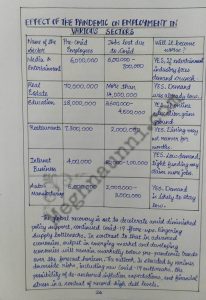 EFFECT OF THE PANDEMIC ON EMPLOYMENT IN
VARIOUS SECTORS
Name of the sector
Pre-Covid Employees
Jobs lost due to Covid
Will it become worse?
Media & Entertainment
6,000,000
YES, If entertainment industry faces demand crunch
Real Estate
More than
YES, Demand was already low
Education
18,000,000
YES, If online education gains ground
Restaurants
7,300,000
2,000,000
YES, Dining may not recover for months.
Internet Business
YES, Low demand, tight funding may claim more jobs.
Auto-Manufacture
YES, Demand is likely to stay low.
The global recovery is set to decelerate amid diminished
policy support, continued Covid-19 flare-ups, lingering
supply bottlenecks. In contrast to that in advanced
economies, output in emerging market and developing
economies will remain markedly below pre-pandemic trends
over the forecast horizon. The outlook is clouded by various
downside risks, including new Covid-19 outbreaks, the
possibility of de-anchored inflation expectations, and financial
stress in a context of record-high debt levels.